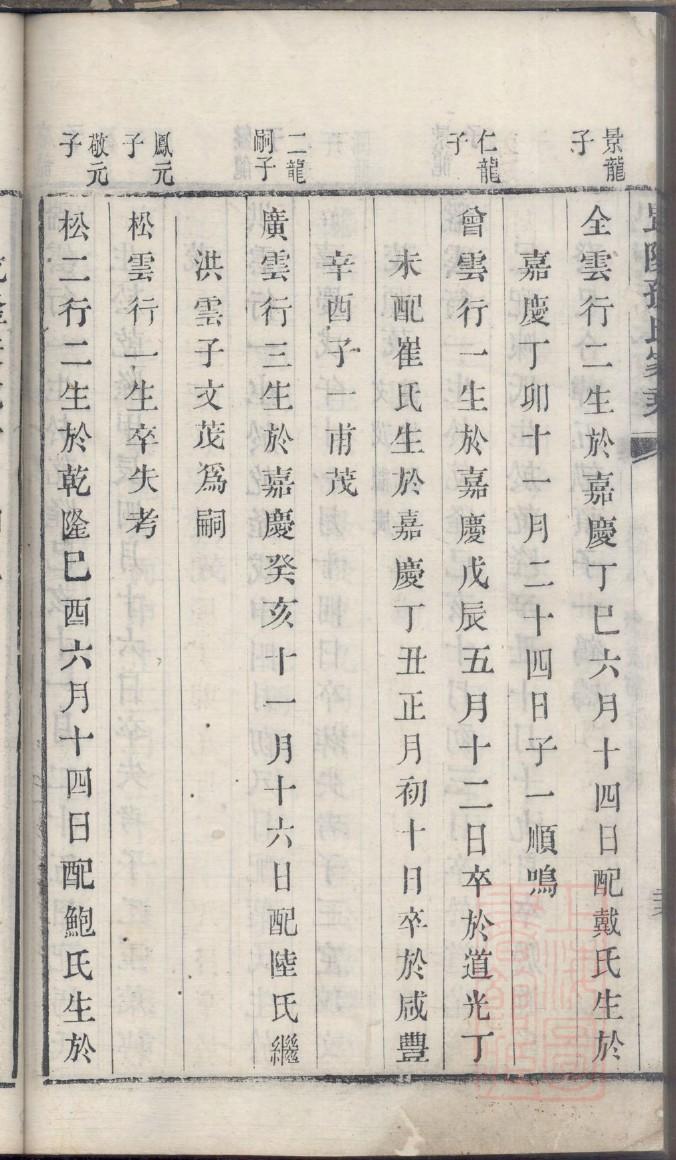 景龍子
全雲行二生於嘉慶丁巳六月十四日配戴氏生於
嘉慶丁卯十一月二十四日子一順鳴
仁龍子
曾雲行一生於嘉慶戊辰五月十二日卒於道光丁
未配崔氏生於嘉慶丁丑正月初十日卒於咸豐
辛酉子一甫茂
二龍嗣子
廣雲行三生於嘉慶癸亥十一月十六日配陸氏繼
洪雲子文茂爲嗣
鳳元子
松雲行一生卒失考
敬元子
松二行二生於乾隆巳酉六月十四日配鮑氏生於